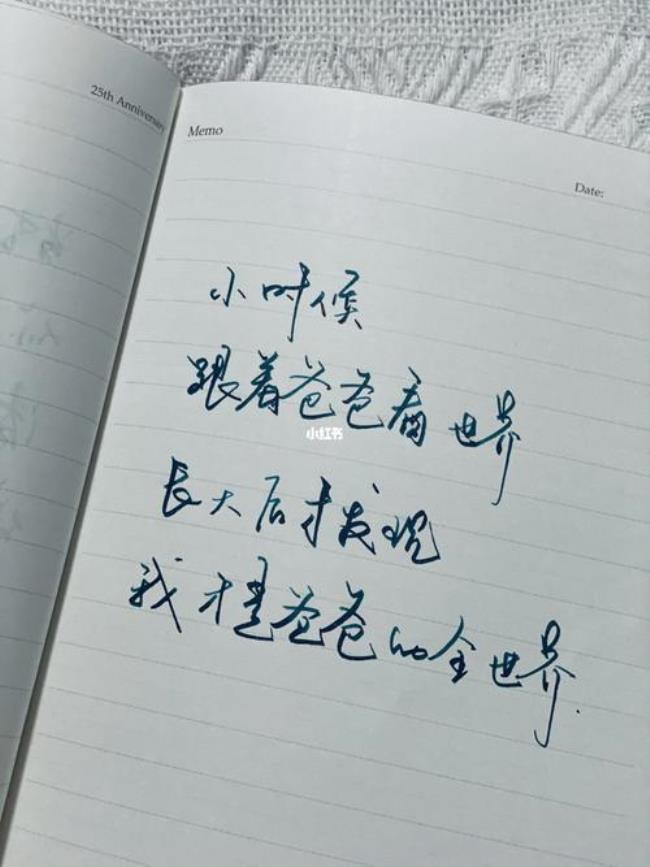 25th Anniversary
Memo
Date:
小时候
跟着爸爸看世界
小红书
長大后才发现
我才是爸爸的全世界.